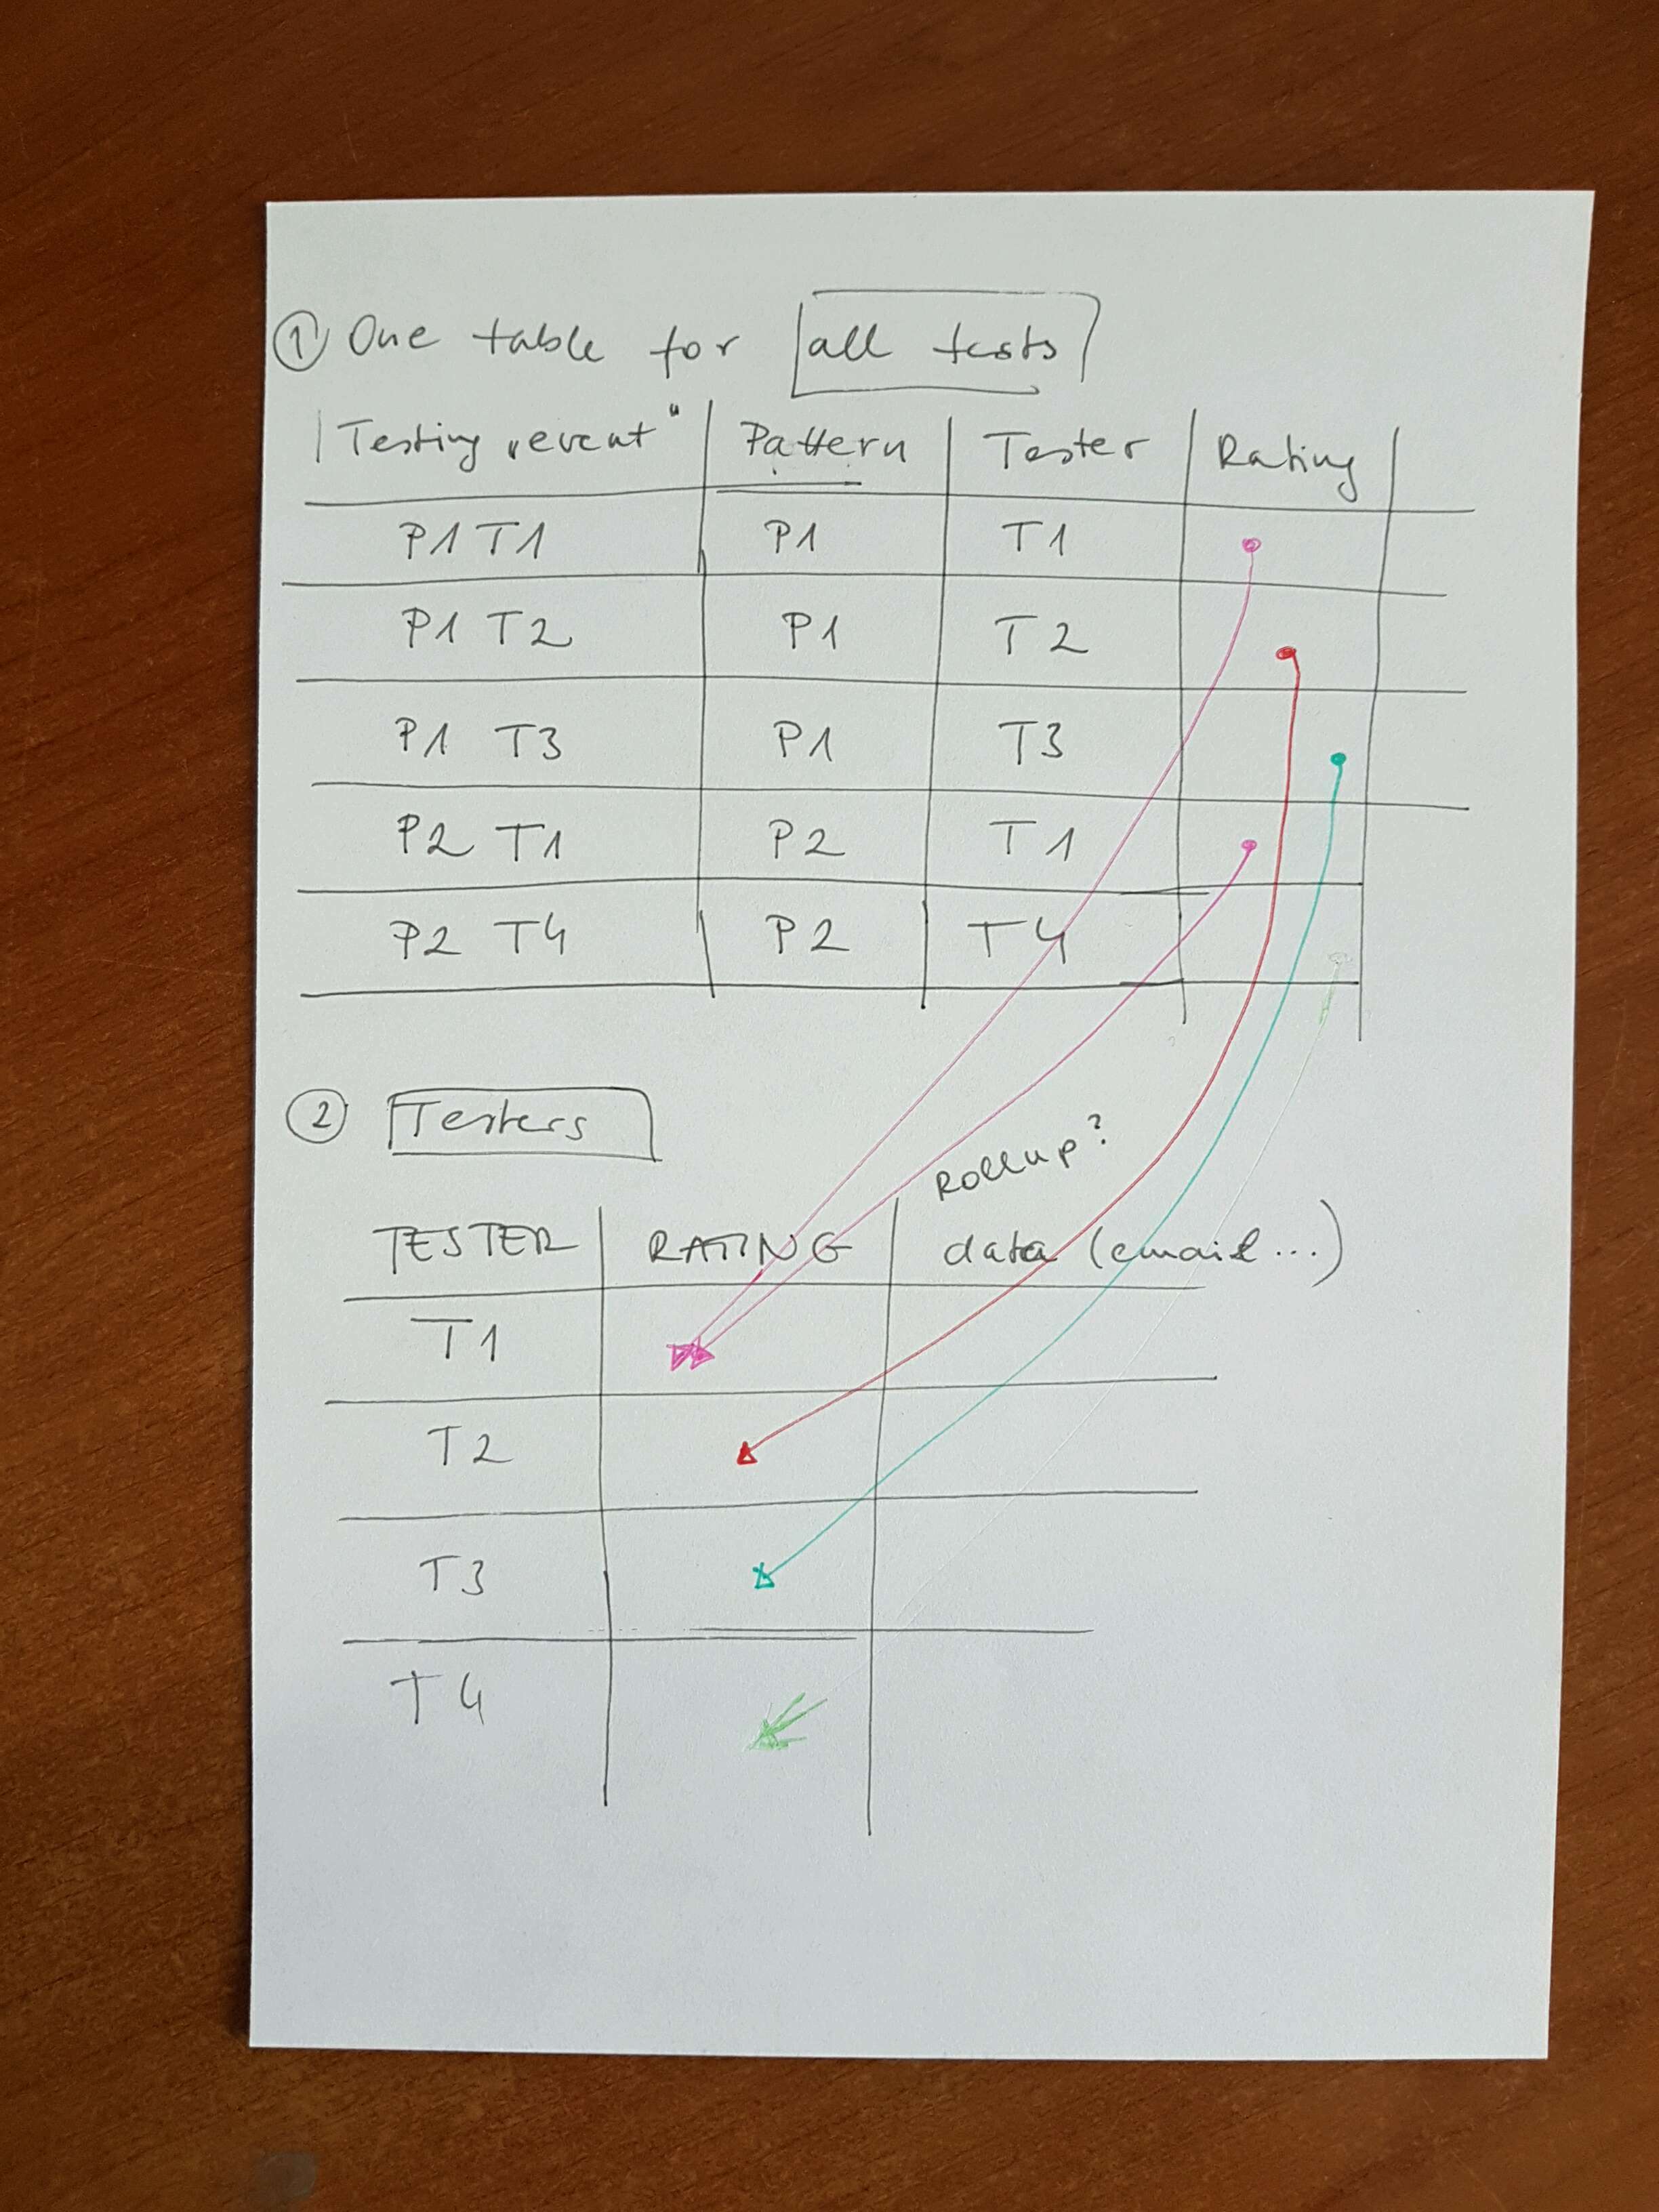 ① One table for all tests
Testing „event“ Pattern Tester Rating
P1 T1 P1 T1
P1 T2 P1 T2
P1 T3 P1 T3
P2 T1 P2 T1
P2 T4 P2 T4
② Testers
Rollup?
TESTER RATING data (email...)
T1
T2
T3
T4